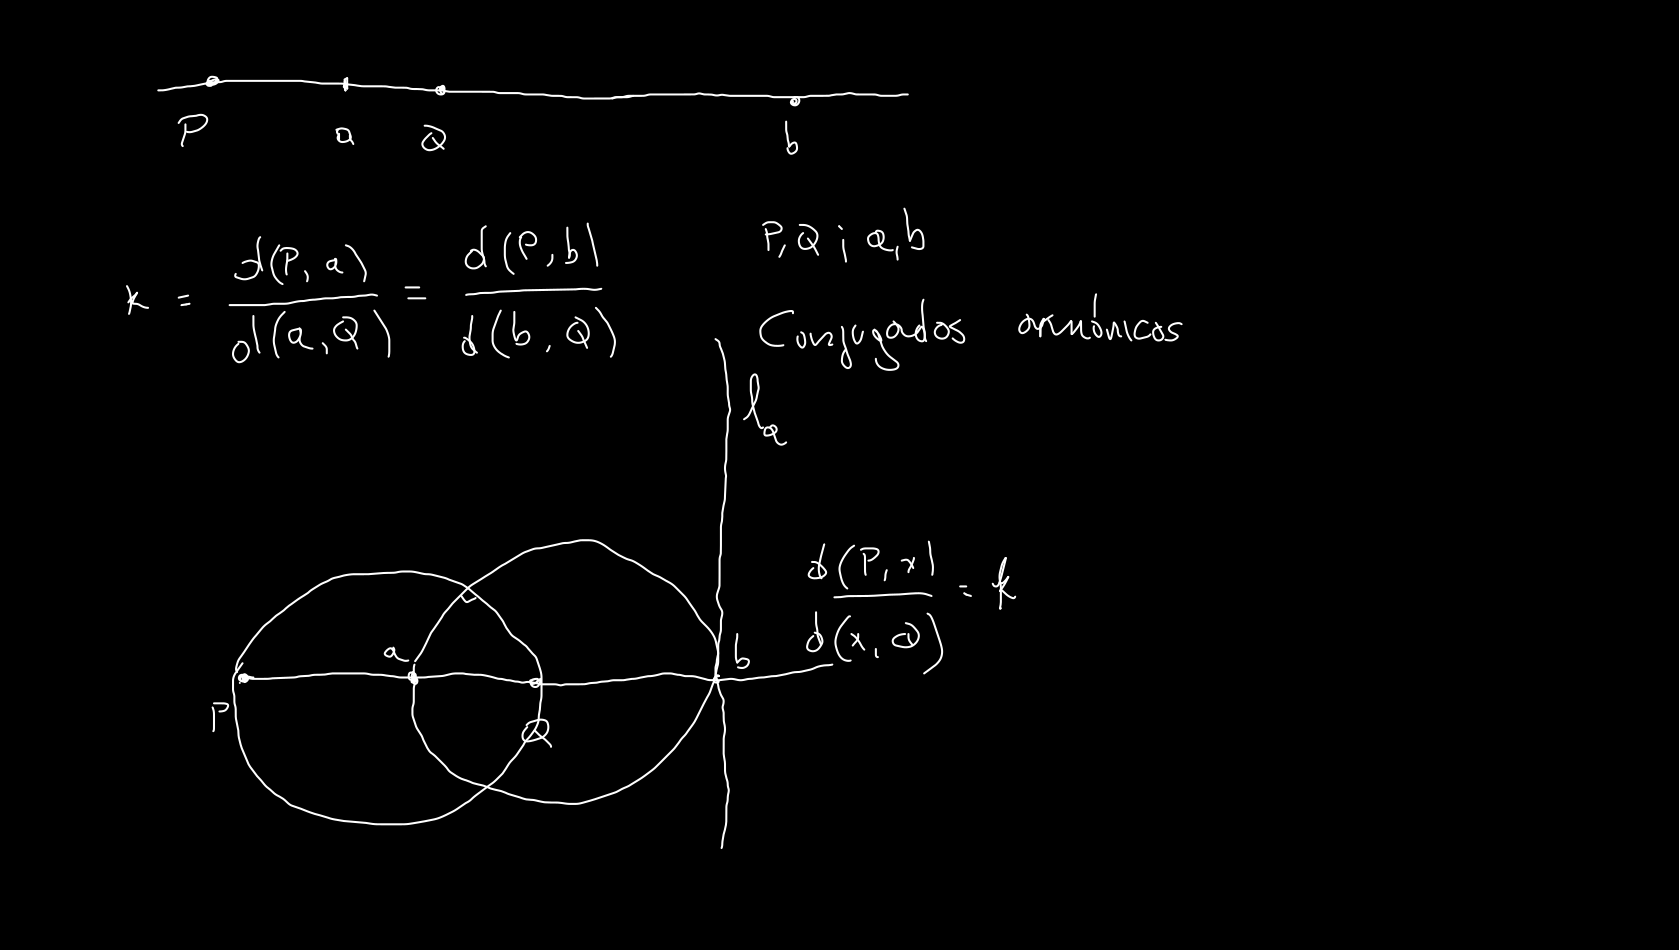 P a Q b
k = d(P, a) / d(a, Q) = d(P, b) / d(b, Q)
P, Q ; a, b
Conjugados armónicos
l_a
d(P, x) / d(x, Q) = k
a b
P Q